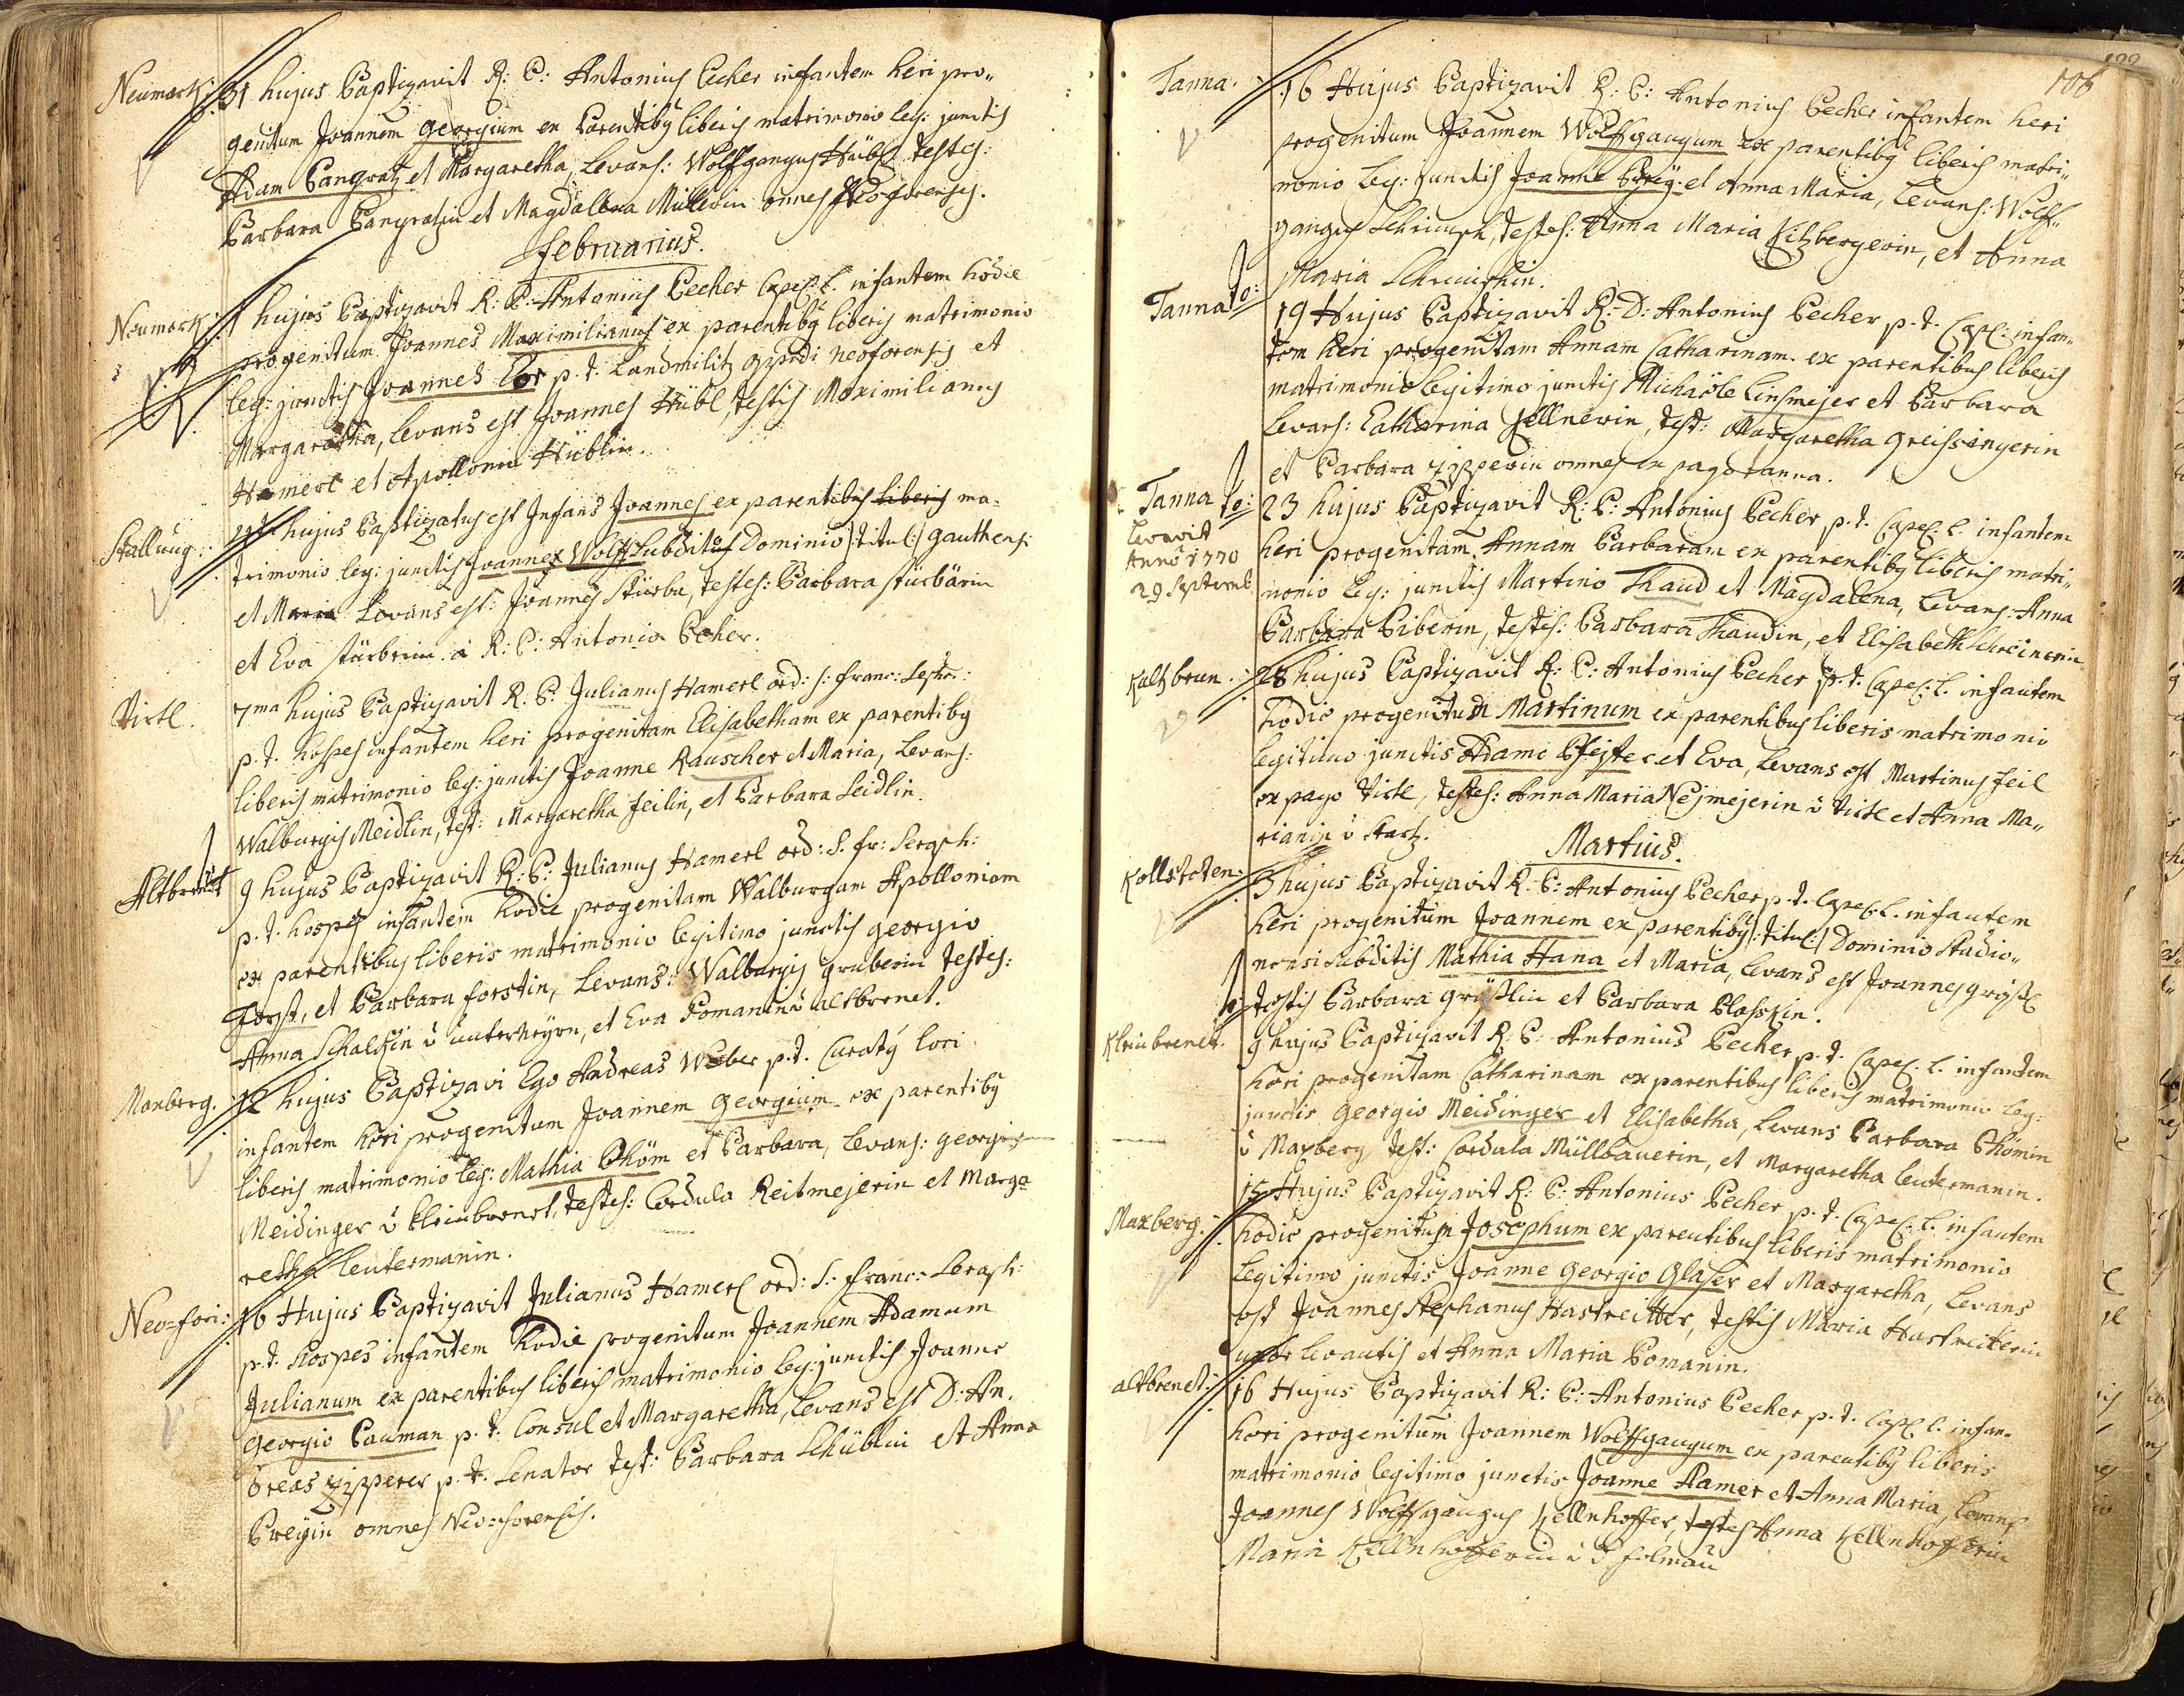 Neumark: 31 hujus Baptizavit R: P: Antonius Becher infantem heri pro„
genitum Joannem Georgium ex Parentiby liberis matrimonio leg: junctis
Adam Pangratz et Margaretha, Levans: Wolffgangus Hübl testes:
Barbara Pangratzin et Magdalena Müllerin omnes Neoforenses.
Februarius.
Neumark: 1 hujus Baptizavit R: P: Antonius Becher Capel: l. infantem hodie
progenitum Joannes Maximilianus ex parentiby liberis matrimonio
leg: junctis Joannes Lor p. t. Landmilitz oppidi neoforensis et
Margaretha, levans est Joannes Hübl, testis Maximilianus
Hamerl et Apollonia Hüblin.
Stallung: hujus Baptizatus est Infans Joannes ex parentibus liberis ma-
trimonio leg: junctis Joannes Wolff Subditus Dominio /:titul:/ Gauthens:
et Maria Levans est: Joannes Stürbn, testes: Barbara stürbärin
et Eva stürbrin. a R: P: Antonio Becher.
Virtl. 7ma hujus Baptizavit R. P. Julianus Hamerl ord: s: Franc: Seph:
p. t. hospes infantem heri progenitam Elisabetham ex parentiby
liberis matrimonio leg: junctis Joanne Rauscher et Maria, Levans:
Walburgis Meidlin, test: Margaretha Feilin, et Barbara Seidlin.
Altbrenet 9 hujus Baptizavit R: P: Julianus Hamerl ord: S. Fr: Seraph:
p. t. hospes infantem hodie progenitam Walburgam Apolloniam
ex parentibus liberis matrimonio legitimo junctis georgio
Forst, et Barbara Forstin, Levans: Walburgis gruberin testes:
Anna Schalckin ü unterheyrn, et Eva Pomanin ü altbrenet.
Maxberg. 12 hujus Baptizavi Ego Andreas Weber p. t. Curaty loci
infantem heri progenitum Joannem Georgium ex parentiby
liberis matrimonio leg: Mathia Böhm et Barbara, levans: georgis
Meidinger ü kleinbrenet, testes: Cordula Reitmejerin et Marga
retha leutermanin.
Neo=fori: 16 Hujus Baptizavit Julianus Hamerl ord: S: Franc: Seraph:
p. t. hospes infantem hodie progenitum Joannem Adamum
Julianum ex parentibus liberis matrimonio leg: junctis Joanne
Georgio Pauman p. t. Consul et Margaretha, Levans est D: An.
dreas Zipperer p. t. Senator test: Barbara Schüblin et Anna
Breyin omnes Neo=forensis.
106
Tanna. 16 Hujus Baptizavit R: P: Antonius Becher infantem heri
progenitum Joannem Wolffgangum ex parentiby liberis matri„
monio leg: junctis Joanne Breÿ: et Anna Maria, Levans: Wolff„
gangus Schrimpf, testes: Anna Maria Kitzbergerin, et Anna
Maria Schrimpfin.
Tanna 19 Hujus Baptizavit R: D: Antonius Becher p. t. Capl: infan„
tem heri progenitam Annam Catharinam ex parentibus liberis
matrimonio legitimo junctis Michaële Linsmejer et Barbara
Levans: Catharina Zellnerin, test: Margaretha Greissingerin
et Barbara Zipperin omnes ex pago tanna.
Tanna 23 hujus Baptizavit R: P: Antonius Becher p. t. Capel: l. infantem
Levavit
Anno 1770
29 Septemb
heri progenitam Annam Barbaram ex parentiby liberis matri„
monio leg: junctis Martino Thaud et Magdalena, Levans: Anna
Barbara Biberin, testes: Barbara Thaudin, et Elisabeth Schreinerin
Kaltzbrun: 28 hujus Baptizavit R: P: Antonius Becher p. t. Capel: l. infantem
hodie progenitum Martinum ex parentibus liberis matrimonio
legitimo junctis Adamo Pfejffer et Eva, Levans est Martinus Feil
ex pago Virtl, testes: Anna Maria Nejmejerin ü Virtl et Anna Ma„
rianin ü Startz.
Martius.
Kollstaten: 3 hujus Baptizavit R: P: Antonius Becher p. t. Capel: l. infantem
heri progenitum Joannem ex parentiby /:titul:/ Dominio Stadio„
nensi subditis Mathia Hana et Maria, Levans est Joannes gröβl
testis Barbara gröβlin et Barbara Blasskin.
Kleinbrenet. 9 hujus Baptizavit R: P: Antonius Becher p. t. Capel: l. infantem
heri progenitam Catharinam ex parentibus liberis matrimonio leg:
junctis Georgio Meidinger et Elisabetha, Levans Barbara Böhmin
ü Maxberg test: Cordula Müllbauerin, et Margaretha leutermanin.
Maxberg. 15 Hujus Baptizavit R: P: Antonius Becher p. t. Capel: l. infantem
hodie progenitum Josephum ex parentibus liberis matrimonio
legitimo junctis Joanne Georgio Glaser et Margaretha, Levans
est Joannes Stephanus Hastreitter, testis Maria Hastreiterin
uxor levantis et Anna Maria Pomanin.
altbrenet: 16 Hujus Baptizavit R: P: Antonius Becher p. t. Capl: l. infan„
heri progenitum Joannem Wolffgangum ex parentiby liberis
matrimonio legitimo junctis Joanne Hamer et Anna Maria, Levans
Joannes Wolffgangus Kellnhoffer, testes Anna Kellnhofferin
Maria Kellnhofferin ü